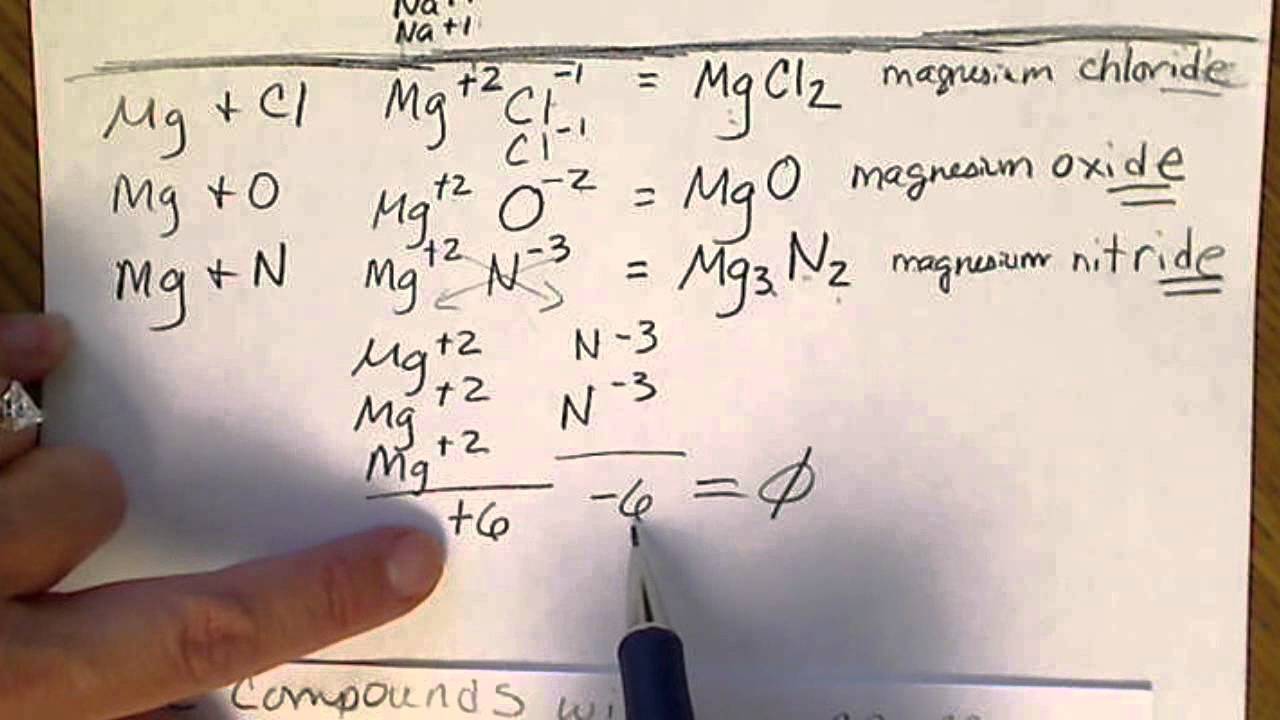 Na+1
Na+1
Mg + Cl Mg+2 Cl-1 = MgCl2 magnesium chloride
Cl-1
Mg + O Mg+2 O-2 = MgO magnesium oxide
Mg + N Mg+2 N-3 = Mg3N2 magnesium nitride
Mg+2 N-3
Mg+2 N-3
Mg+2
+6 -6 = ϕ
Compounds